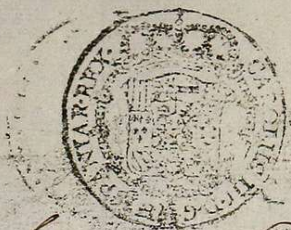 CAROLUS III D G
HISPANIAR REX